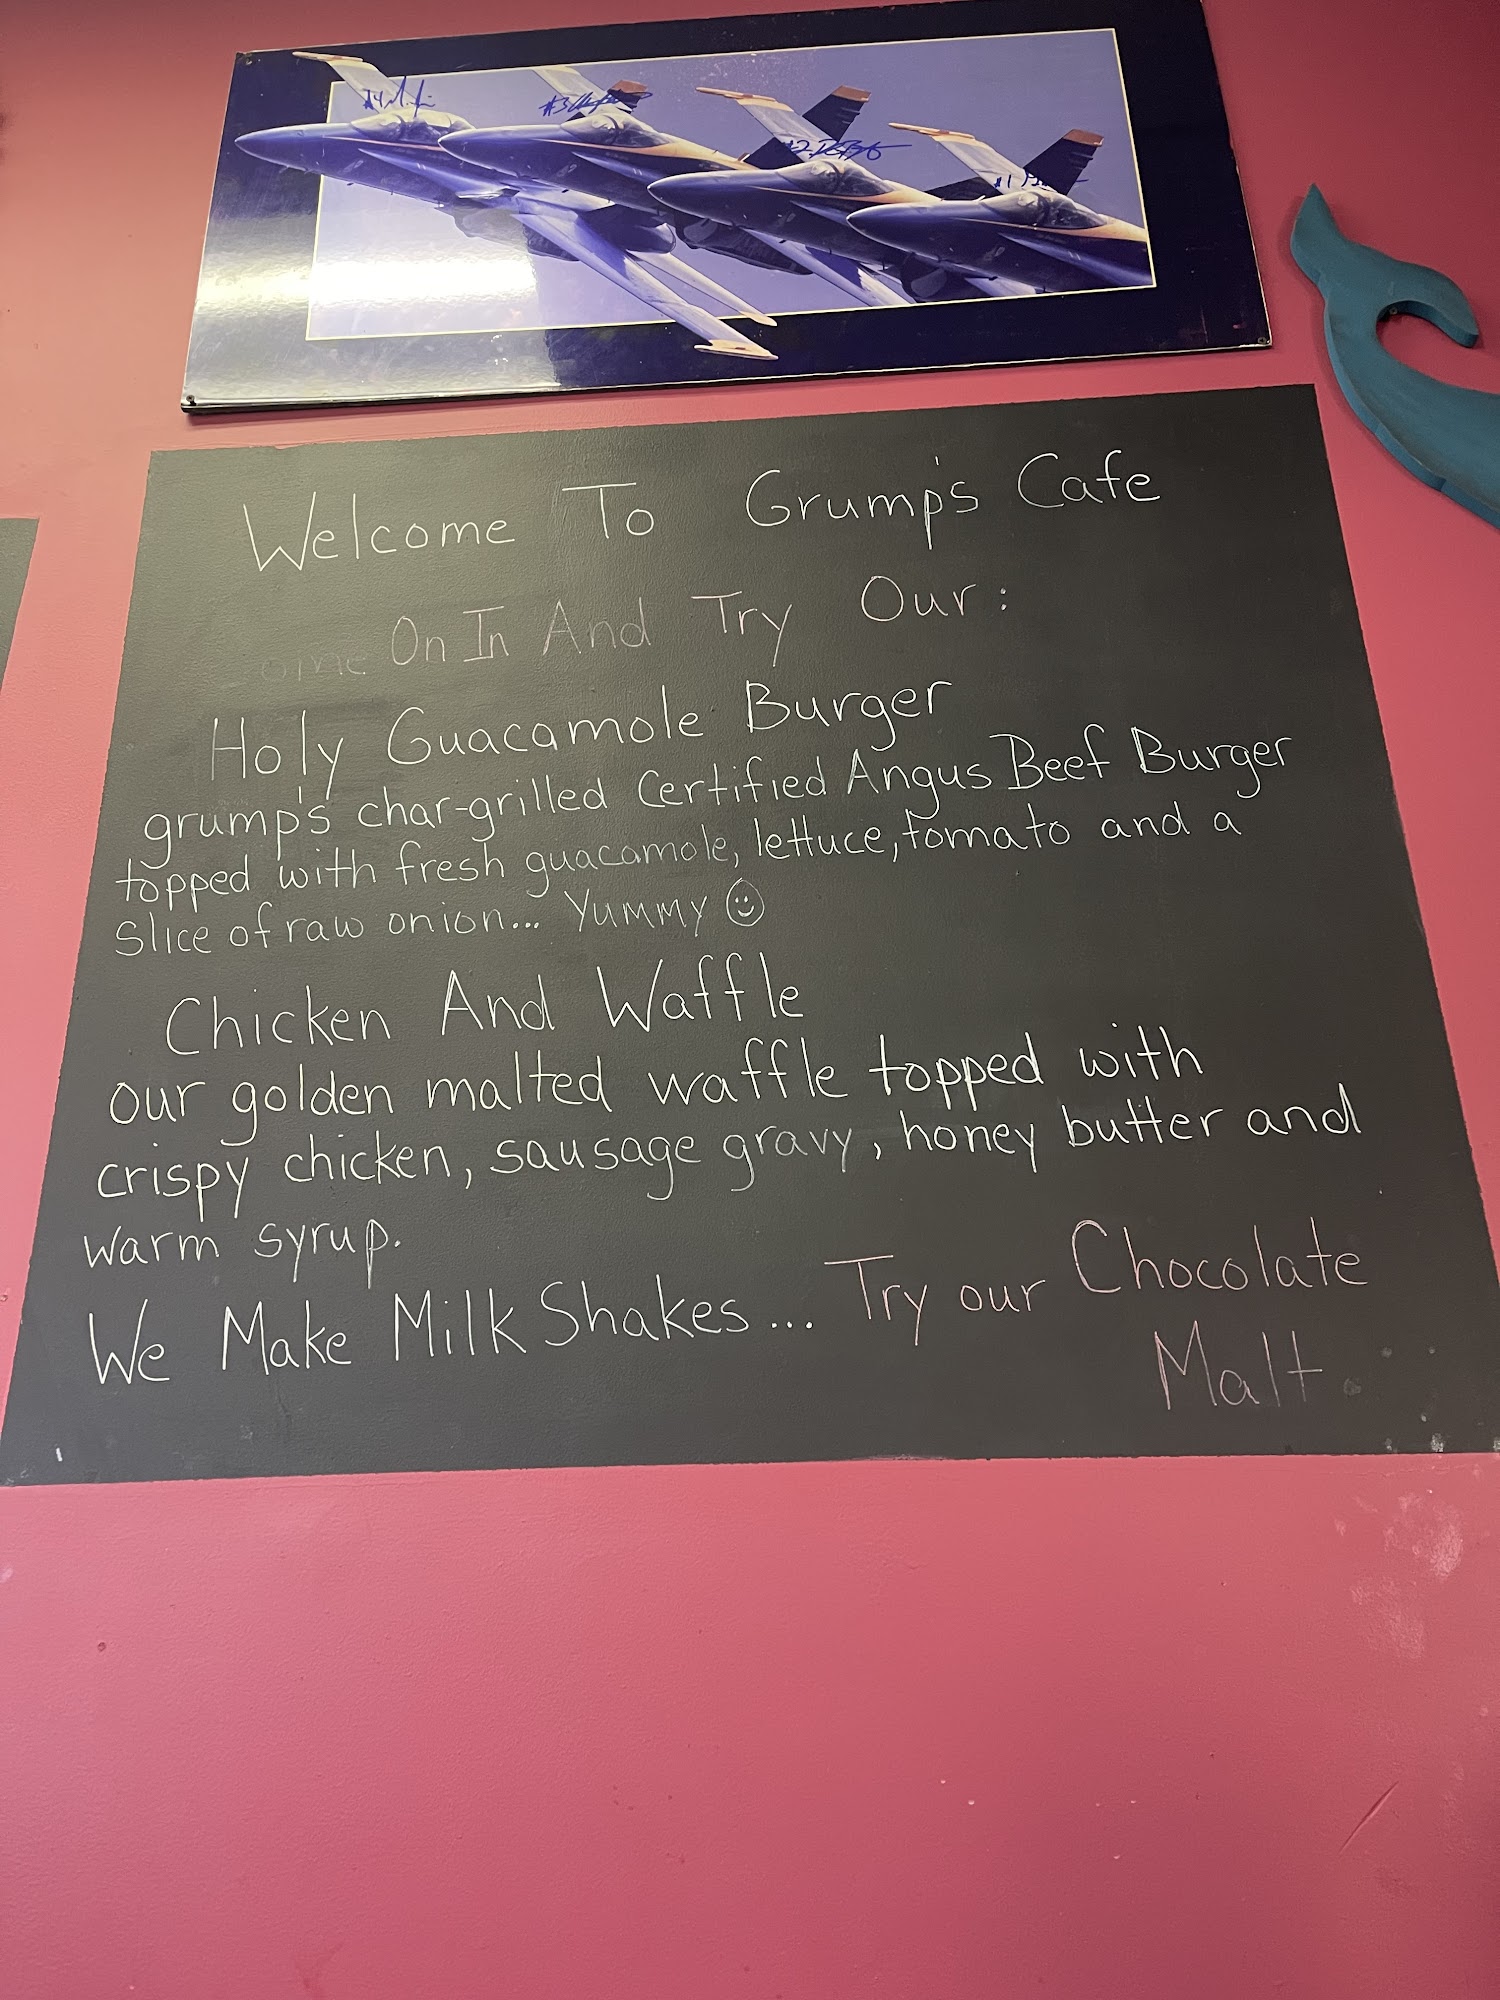 Welcome To Grump's Cafe
Come On In And Try Our:
Holy Guacamole Burger
grump's char-grilled Certified Angus Beef Burger
topped with fresh guacamole, lettuce, tomato and a
slice of raw onion... Yummy ☺
Chicken And Waffle
our golden malted waffle topped with
crispy chicken, sausage gravy, honey butter and
warm syrup.
We Make Milk Shakes... Try our Chocolate
Malt.
#4
#3
#2
#1